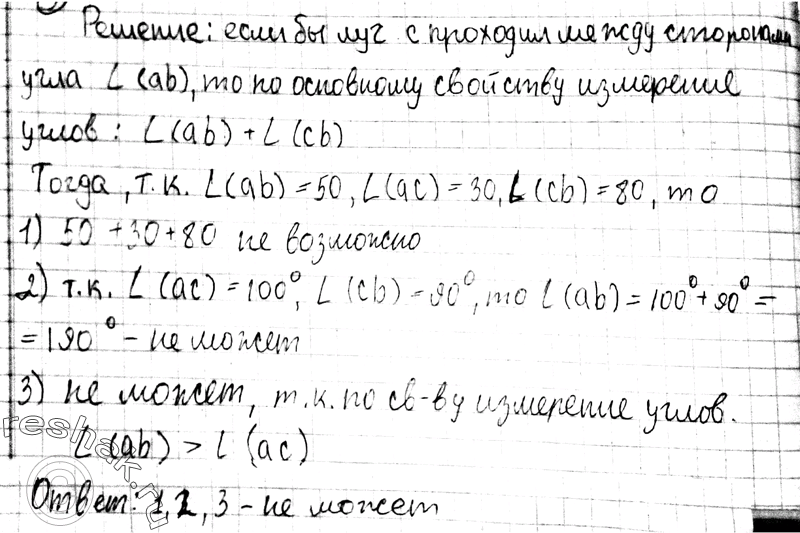 Решение: если бы луч с проходил между сторонами
угла ∠(ab), то по основному свойству измерение
углов: ∠(ab) + ∠(cb)
Тогда, т.к. ∠(ab) = 50, ∠(ac) = 30, ∠(cb) = 80, то
1) 50 + 30 + 80 не возможно
2) т.к. ∠(ac) = 100°, ∠(cb) = 90°, то ∠(ab) = 100° + 90° =
= 190° - не может
3) не может, т.к. по св-ву измерение углов.
∠(ab) > ∠(ac)
Ответ: 1, 2, 3 - не может
reshak.ru